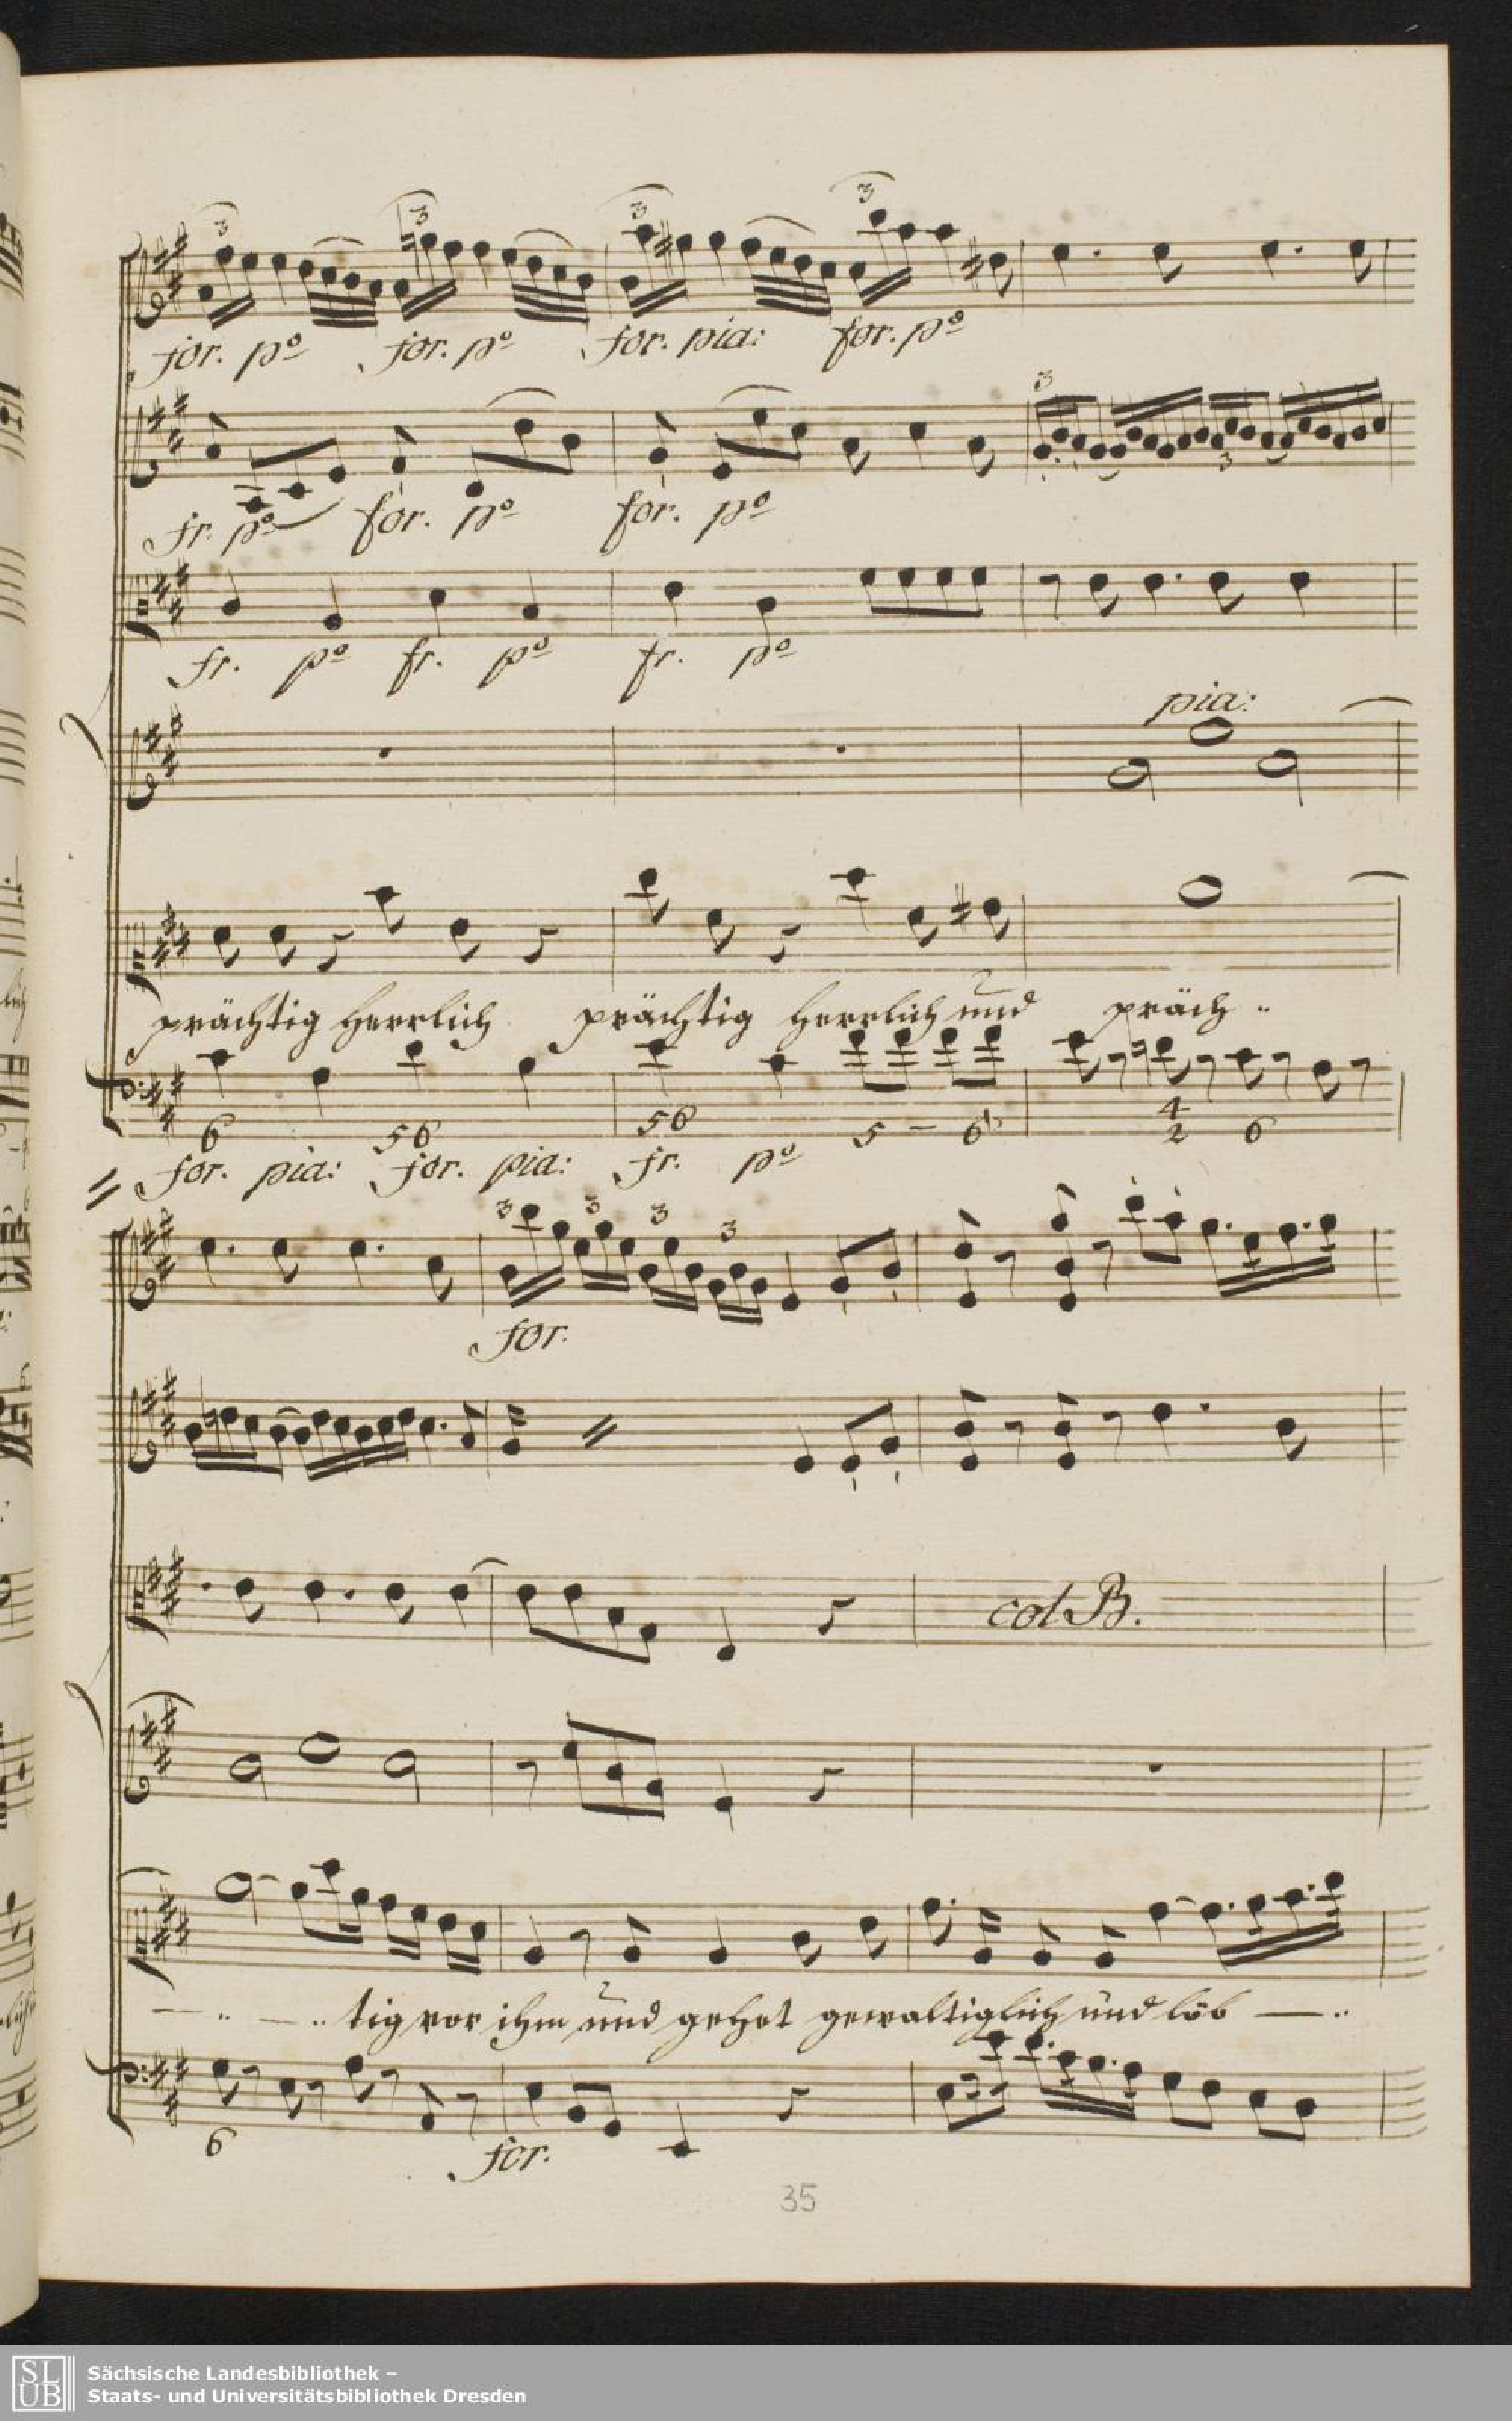 3 3 3 3
for. po for. po for. pia: for. po
3 3
fr. po for. po for. po
fr. po fr. po fr. po
pia:
prächtig herrlich prächtig herrlich und präch ..
6 56 56 5 – 6 4 2 6
for. pia: for. pia: fr. po
3 3 3 3
for.
col B.
— .. — .. tig vor ihm und gehet gewaltiglich und löb — ..
6 for.
35
SLUB
Sächsische Landesbibliothek –
Staats- und Universitätsbibliothek Dresden